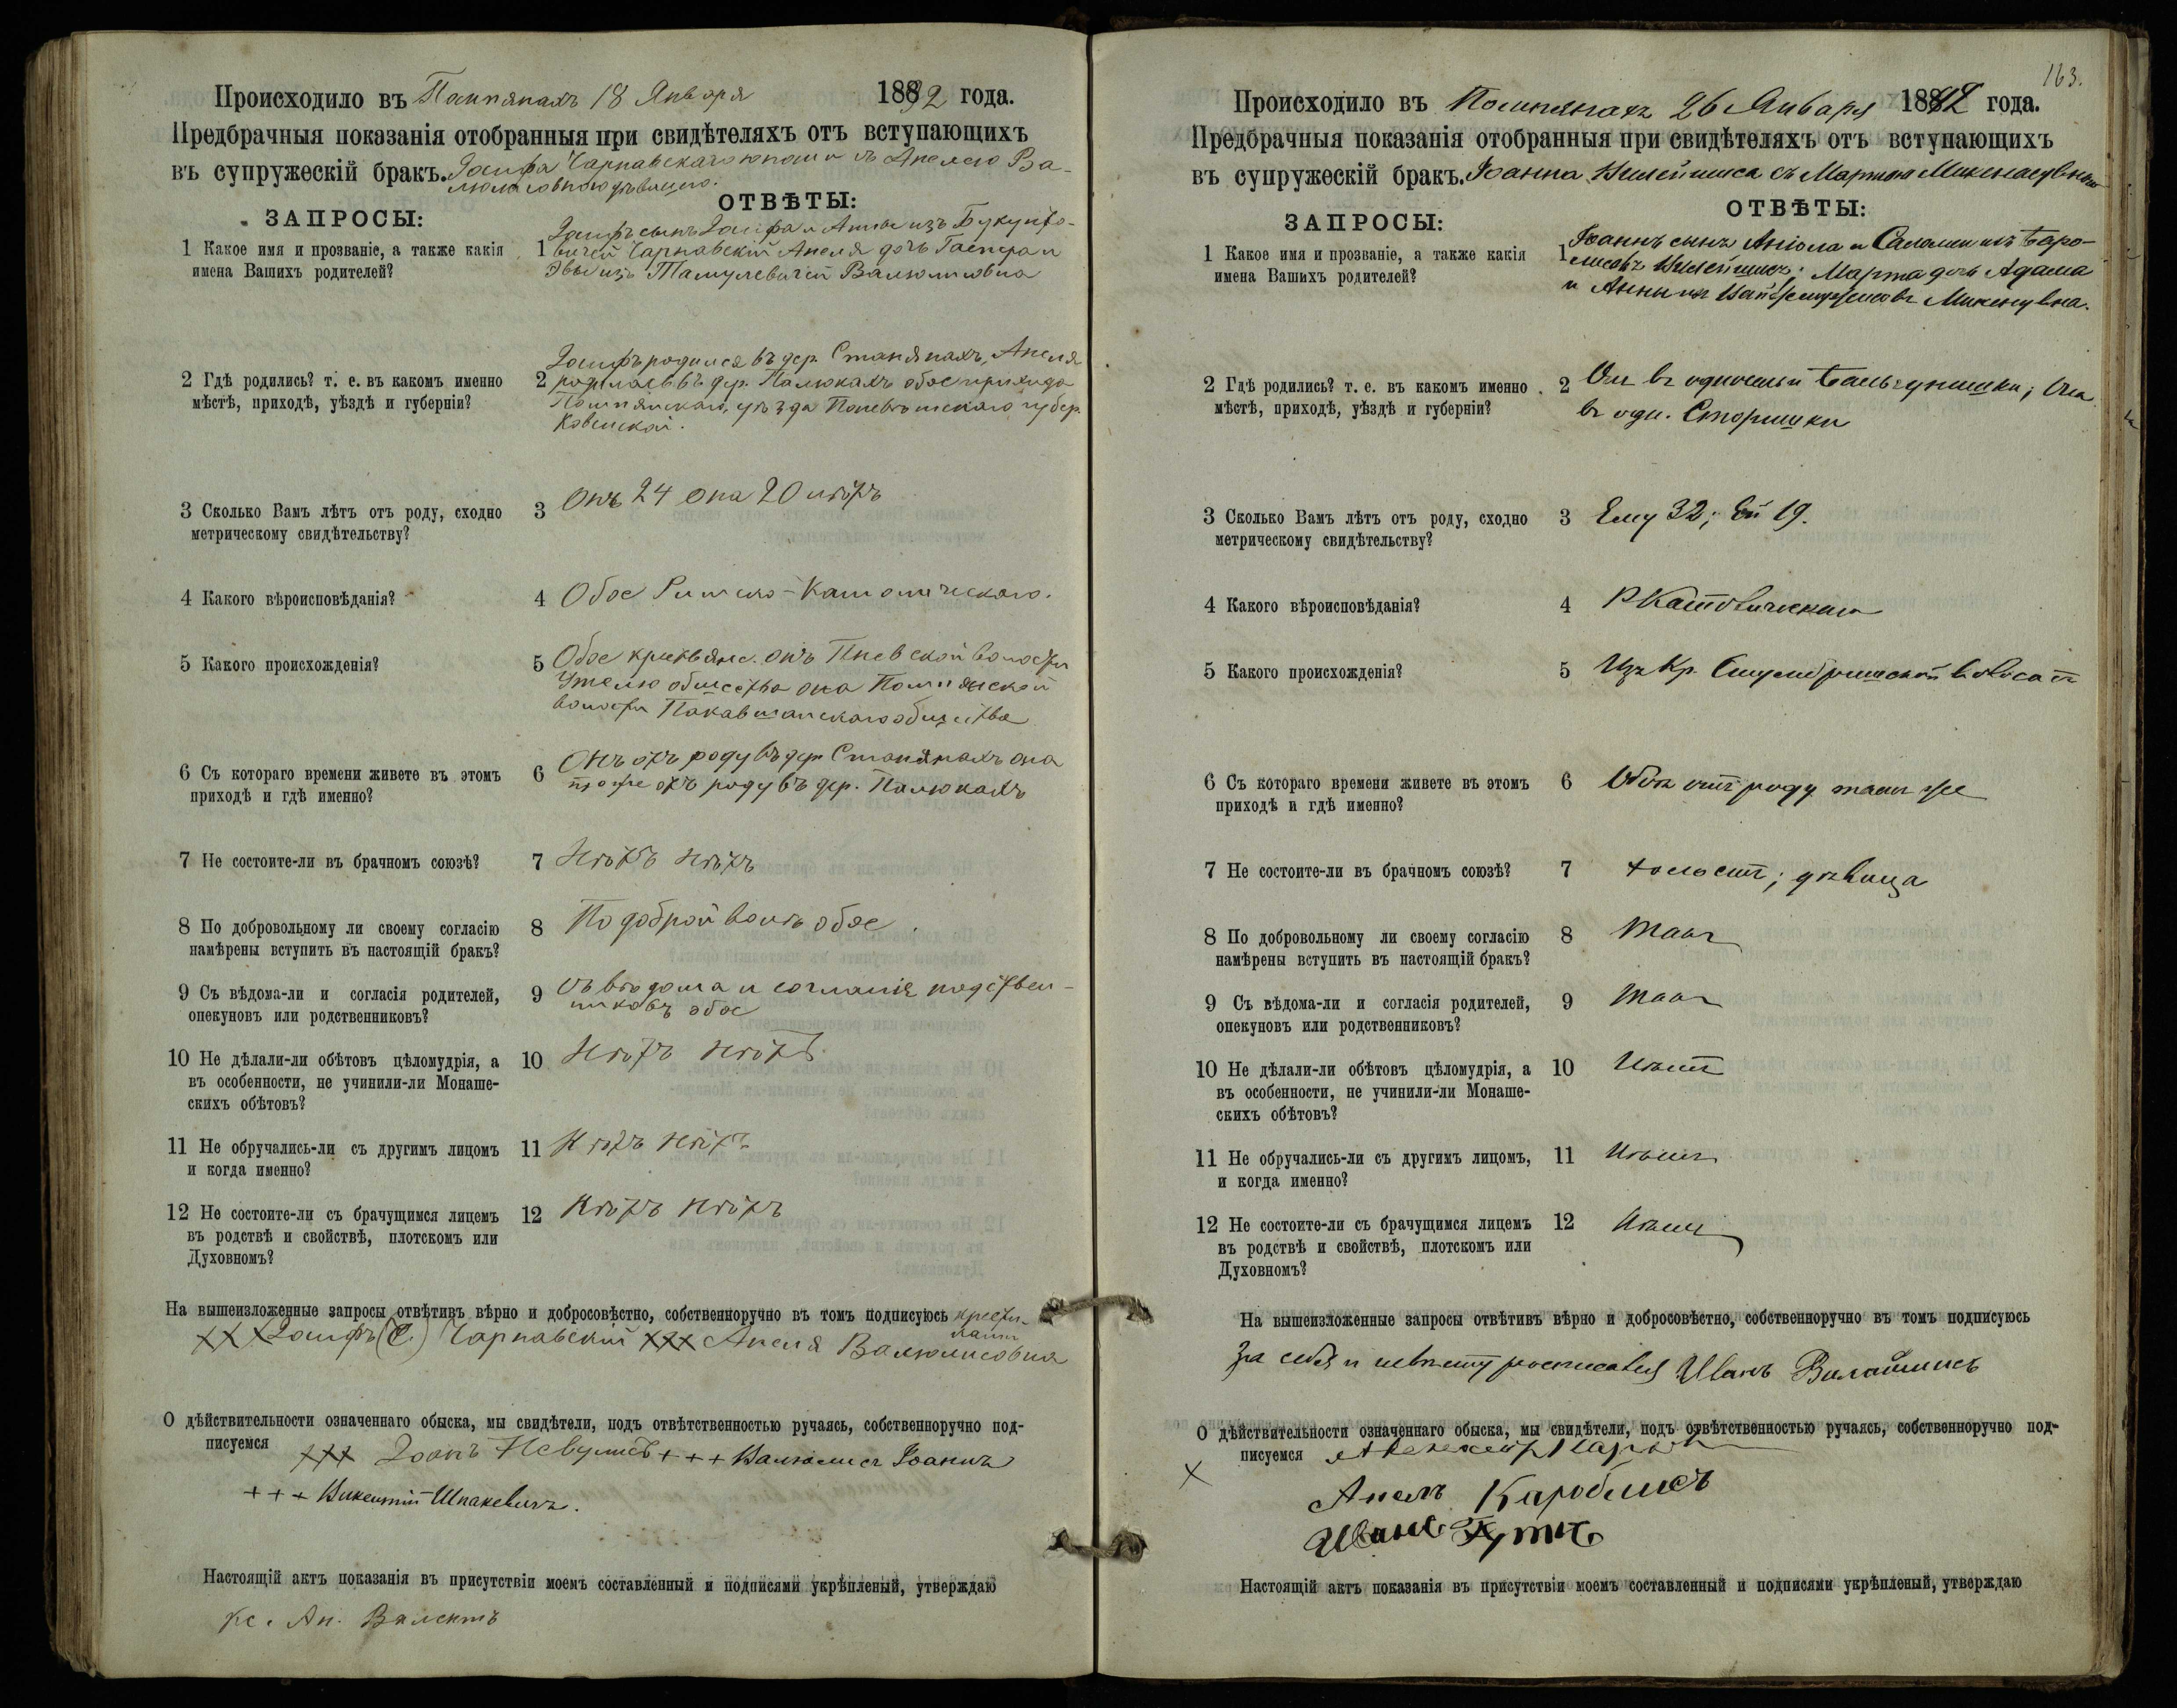 Происходило въ Помпянахъ 18 Января 1892 года.
Предбрачныя показанія отобранныя при свидѣтеляхъ отъ вступающихъ
въ супружескій бракъ. Іосифа Чарнавскаго юноши съ Анелею Ва-
люлисовною дѣвицею.
ЗАПРОСЫ:
ОТВѢТЫ:
1 Какое имя и прозваніе, а также какія
имена Вашихъ родителей?
1 Іосифъ сынъ Іосифа и Анны изъ Букунто-
вичей Чарнавскій Анеля дочь Гаспера и
Эвы изъ Тамулевичей Валюлисовна
2 Гдѣ родились? т. е. въ какомъ именно
мѣстѣ, приходѣ, уѣздѣ и губерніи?
2 Іосифъ родился въ дер. Станянахъ, Анеля
родилась въ дер. Палюкахъ обое прихода
Помпянскаго, уѣзда Поневѣжскаго губер.
Ковенской.
3 Сколько Вамъ лѣтъ отъ роду, сходно
метрическому свидѣтельству?
3 Онъ 24 она 20 лѣтъ
4 Какого вѣроисповѣданія?
4 Обое Римско-Католическаго.
5 Какого происхожденія?
5 Обое крестьяне. онъ Пневской волости
общества она Помпянской
волости общества
6 Съ котораго времени живете въ этомъ
приходѣ и гдѣ именно?
6 Онъ отъ роду въ дер Станянахъ она
тоже отъ роду въ дер. Палюкахъ
7 Не состоите-ли въ брачномъ союзѣ?
7 Нѣтъ нѣтъ
8 По добровольному ли своему согласію
намѣрены вступить въ настоящій бракъ?
8 По доброй волѣ обое
9 Съ вѣдома-ли и согласія родителей,
опекуновъ или родственниковъ?
9 Съ вѣдома и согласія родствен-
никовъ обое
10 Не дѣлали-ли обѣтовъ цѣломудрія, а
въ особенности, не учинили-ли Монаше-
скихъ обѣтовъ?
10 Нѣтъ нѣтъ
11 Не обручались-ли съ другимъ лицомъ
и когда именно?
11 Нѣтъ нѣтъ
12 Не состоите-ли съ брачущимся лицемъ
въ родствѣ и свойствѣ, плотскомъ или
Духовномъ?
12 Нѣтъ нѣтъ
На вышеизложенные запросы отвѣтивъ вѣрно и добросовѣстно, собственноручно въ томъ подписуюсь
ххх Іосифъ Чарнавскій ххх Анеля Валюлисовна
О дѣйствительности означеннаго обыска, мы свидѣтели, подъ отвѣтственностью ручаясь, собственноручно под-
писуемся ххх Іоанъ +++ Валюлисъ Іоаннъ
+++ Викентій Шпакевичъ.
Настоящій актъ показанія въ присутствіи моемъ составленный и подписями укрѣпленый, утверждаю
Кс. Ан. Валентъ
163.
Происходило въ Помпянахъ 26 Января 1892 года.
Предбрачныя показанія отобранныя при свидѣтеляхъ отъ вступающихъ
въ супружескій бракъ. Іоанна съ Мартою
ЗАПРОСЫ:
ОТВѢТЫ:
1 Какое имя и прозваніе, а также какія
имена Вашихъ родителей?
1 Іоаннъ сынъ и Саломеи изъ
Марта дочь Адама
и Анны изъ
2 Гдѣ родились? т. е. въ какомъ именно
мѣстѣ, приходѣ, уѣздѣ и губерніи?
2 Онъ въ околицы Она
въ око.
3 Сколько Вамъ лѣтъ отъ роду, сходно
метрическому свидѣтельству?
3 Ему 32; Ей 19.
4 Какого вѣроисповѣданія?
4 Р Католическаго
5 Какого происхожденія?
5 Изъ Кр. волости
6 Съ котораго времени живете въ этомъ
приходѣ и гдѣ именно?
6 Обое отъ роду тамъ же
7 Не состоите-ли въ брачномъ союзѣ?
7 холостъ; дѣвица
8 По добровольному ли своему согласію
намѣрены вступить въ настоящій бракъ?
8 Такъ
9 Съ вѣдома-ли и согласія родителей,
опекуновъ или родственниковъ?
9 Такъ
10 Не дѣлали-ли обѣтовъ цѣломудрія, а
въ особенности, не учинили-ли Монаше-
скихъ обѣтовъ?
10 Нѣтъ
11 Не обручались-ли съ другимъ лицомъ,
и когда именно?
11 Нѣтъ
12 Не состоите-ли съ брачущимся лицемъ
въ родствѣ и свойствѣ, плотскомъ или
Духовномъ?
12 Нѣтъ
На вышеизложенные запросы отвѣтивъ вѣрно и добросовѣстно, собственноручно въ томъ подписуюсь
За себя и невѣсту росписался Иванъ
О дѣйствительности означеннаго обыска, мы свидѣтели, подъ отвѣтственностью ручаясь, собственноручно под-
писуемся
х
Настоящій актъ показанія въ присутствіи моемъ составленный и подписями укрѣпленый, утверждаю